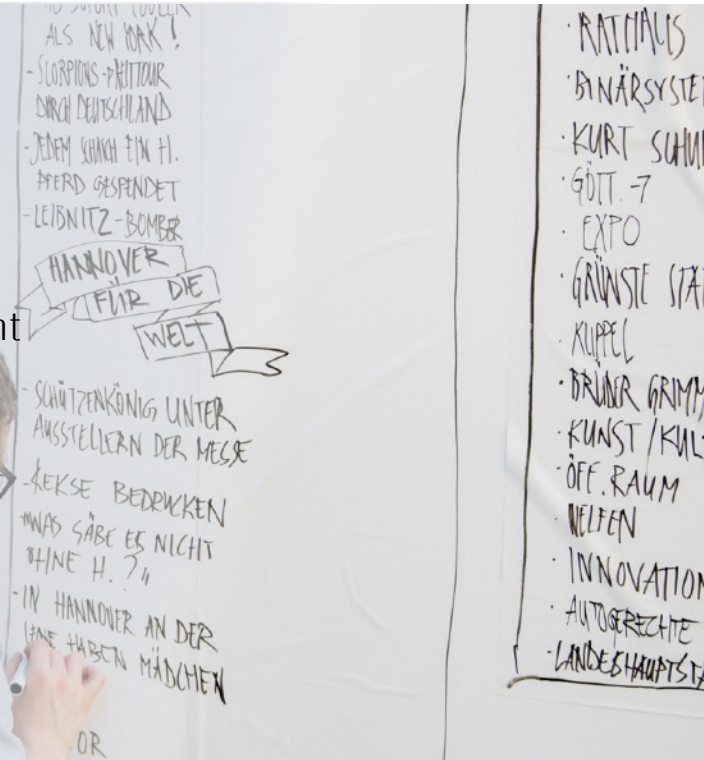 AB SOFORT COOLER
ALS NEW YORK !
- SCORPIONS → WELTTOUR
DURCH DEUTSCHLAND
- JEDEM EIN H.
PFERD GESPENDET
- LEIBNITZ - BOMBER
HANNOVER
FÜR DIE
WELT
nt
- SCHÜTZENKÖNIG UNTER
AUSSTELLERN DER MESSE
- KEKSE BEDRUCKEN
"WAS GÄBE ES NICHT
OHNE H. ?"
- IN HANNOVER AN DER
HABEN MÄDCHEN
OR
· RATHAUS
· BINÄRSYSTE
· KURT SCHU
· GÖTT. -7
· EXPO
· GRÜNSTE STA
· KUPPEL
· BRÜDER GRIMM
· KUNST / KUL
· ÖFF. RAUM
· WELFEN
· INNOVATION
· AUTOGERECHTE
· LANDESHAUPTSTA